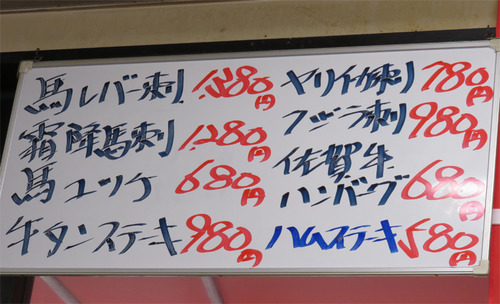 馬レバー刺 1,580円
霜降馬刺 1,280円
馬ユッケ 680円
牛タンステーキ 980円
ヤリイカ刺 780円
クジラ刺 980円
佐賀牛
ハンバーグ 680円
ハムステーキ 580円